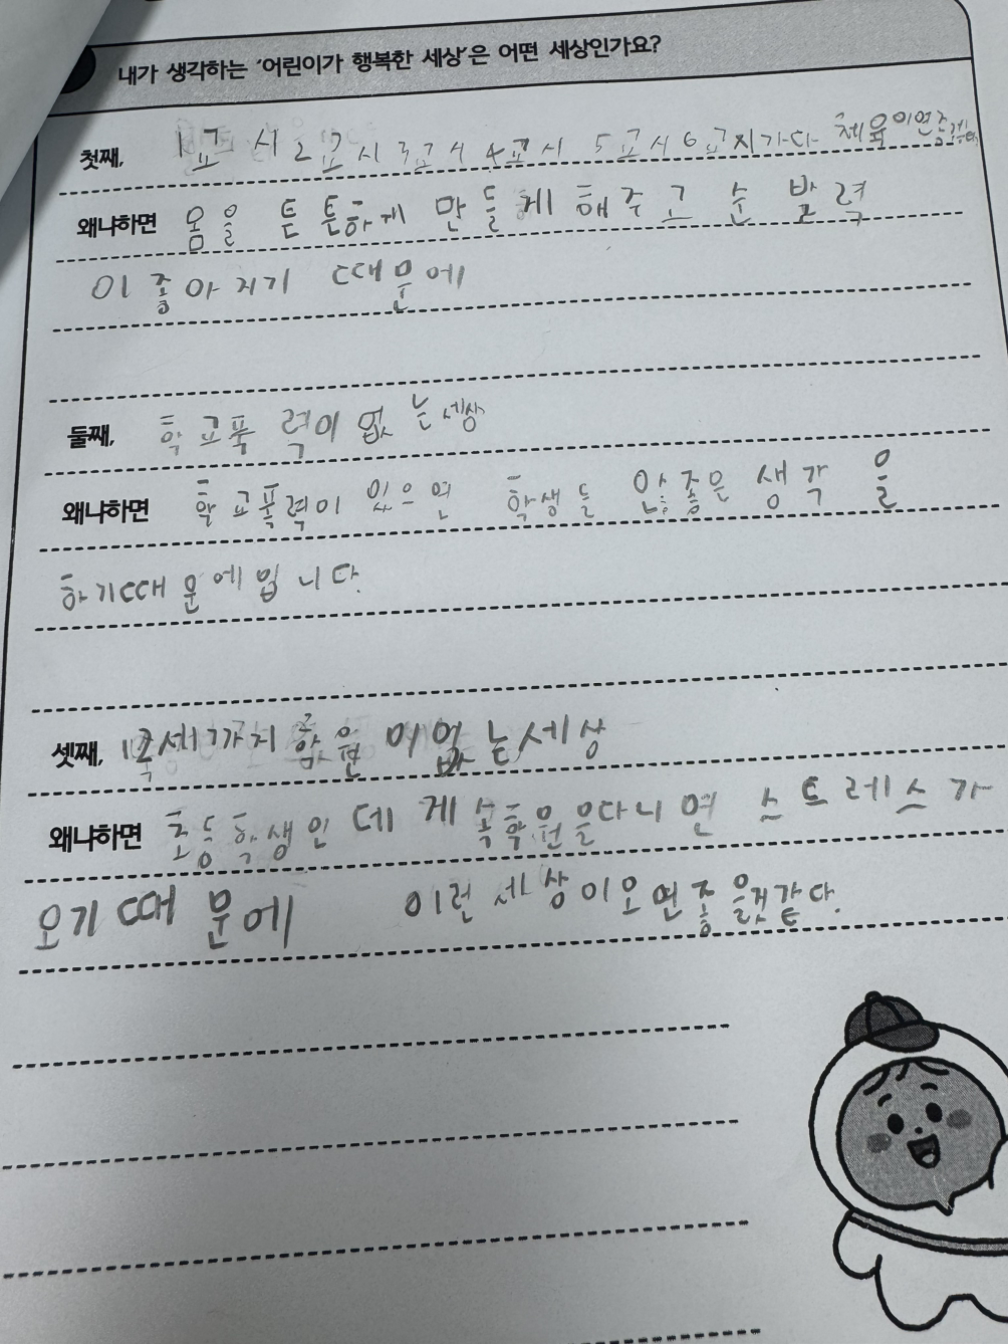 내가 생각하는 '어린이가 행복한 세상'은 어떤 세상인가요?
첫째, 1교시 2교시 3교시 4교시 5교시 6교시가 다 체육이면 좋겠다
왜냐하면 몸을 튼튼하게 만들게 해주고 순발력
이 좋아지기 때문에
둘째, 학교폭력이 없는 세상
왜냐하면 학교폭력이 있으면 학생들 안좋은 생각을
하기때문에입니다.
셋째, 세까지 학원이 없는 세상
왜냐하면 초등학생인데 계속 학원을다니면 스트레스가
오기 때문에 이런 세상이오면좋을것같다.